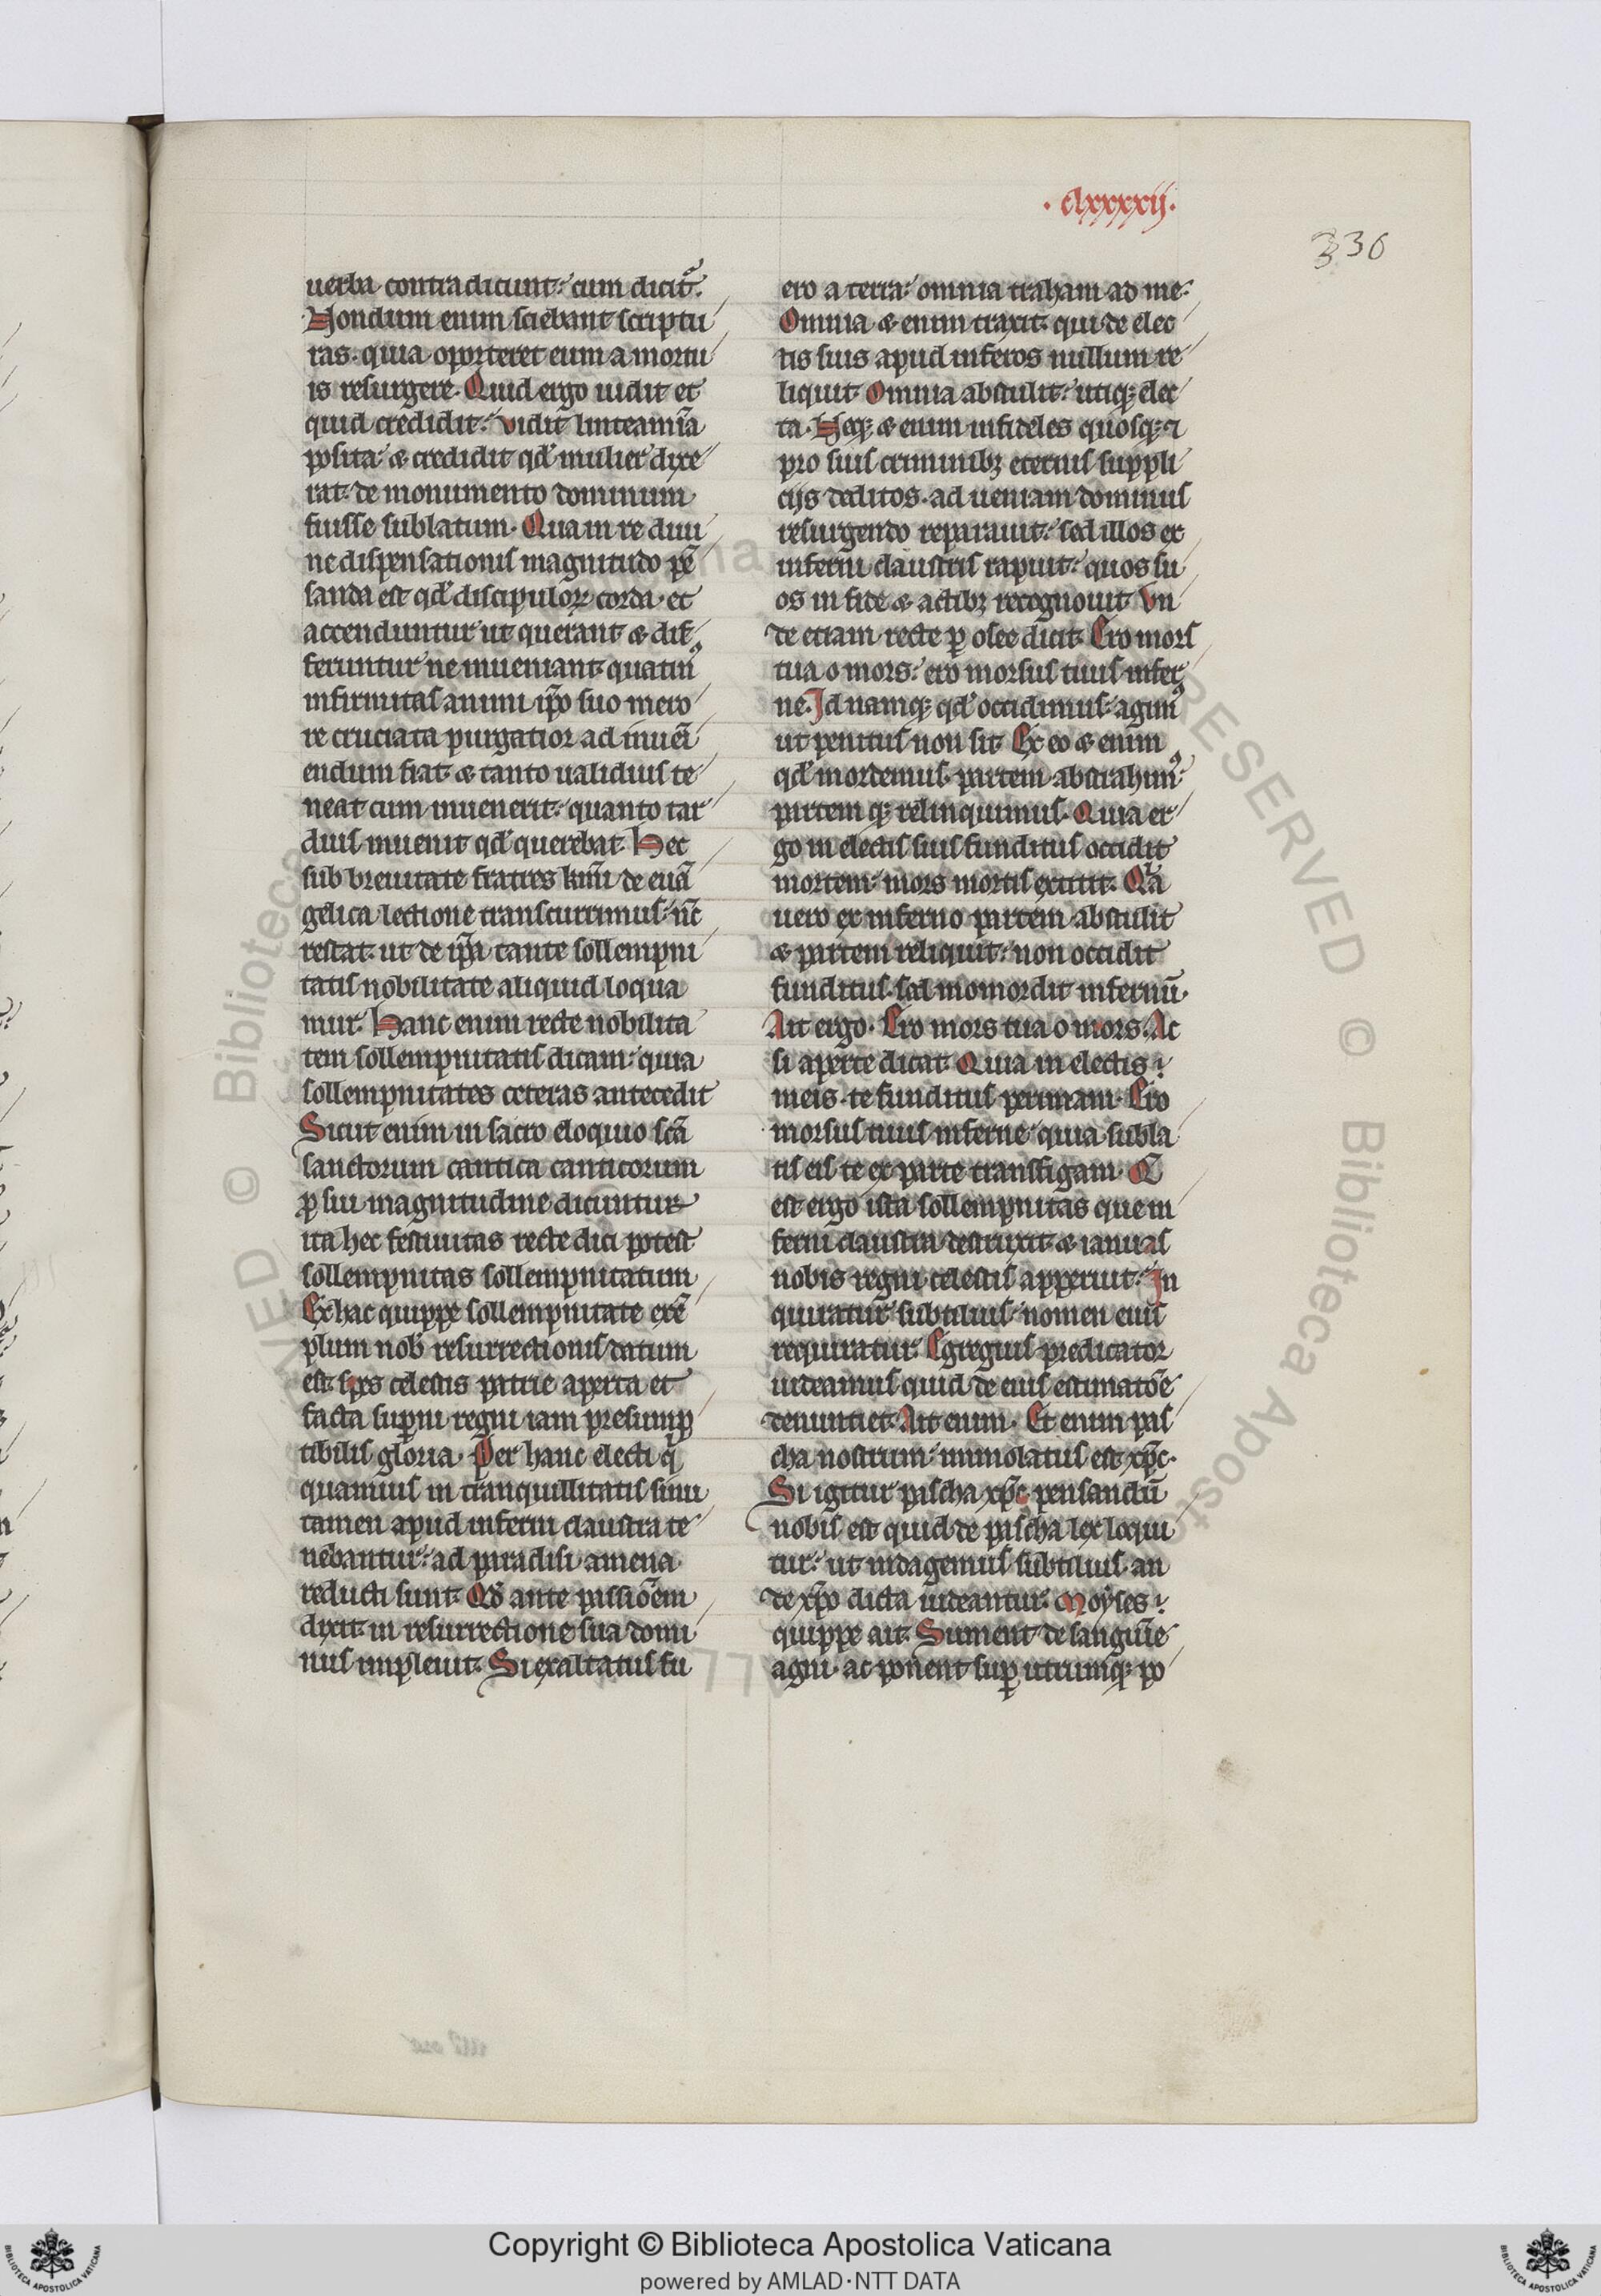 .clxxxxij.
336
uerba contradicunt: cum dicit᷑.
Nondum enim sciebant scriptu
ras. quia oporteret eum a mortu
is resurgere. Quid ergo uidit et
quid credidit: vidit linteamı̄a
posita: & credidit qd̓ mulier dixe
rat. de monumento dominum
fuisse sublatum. Qua in re diui
ne dispensationis magnitudo pē
sanda est qd̓ discipuloꝝ corda. et
accenduntur ut querant & dif
feruntur ne inueniant. quatinꝰ
infirmitas animi ip̄o suo mero
re cruciata purgatior ad inueı̄
endum fiat. & tanto ualidius te
neat cum inuenerit: quanto tar
dius inuenit qd̓ querebat. Hec
sub breuitate fratres kmı̄ de euā
gelica lectione transcurrimus: nc̄
restat. ut de ip̄a tante sollempni
tatis nobilitate aliquid loqua
mur. Hanc enim recte nobilita
tem sollempnitatis dicam: quia
sollempnitates ceteras antecedit
Sicut enim in sacro eloquio scā
sanctorum cantica canticorum
ꝓ sui magnitudine dicuntur
ita hec festiuitas recte dici potest
sollempnitas sollempnitatum
Ex hac quippe sollempnitate exē
plum nob̄ resurrectionis datum
est. spes celestis patrie aperta et
facta suꝑni regni iam presump
tibilis gloria. Per hanc electi q̄
quamuis in tranquillitatis sinu
tamen apud inferni claustra te
nebantur: ad paradisi amena
reducti sunt. Qd̓ ante passiōem
dixit. in resurrectione sua domi
nus impleuit. Si exaltatus fu
ero a terra: omnia traham ad me.
Omnia & enim traxit. qui de elec
tis suis apud inferos nullum re
liquit. Omnia abstulit: utiqꝫ elec
ta. Neqꝫ & enim infideles quosqꝫ ⁊
pro suis criminibꝫ eternis suppli
cijs deditos. ad ueniam dominus
resurgendo reparauit: sed illos ex
inferni claustris rapuit: quos su
os in fide & actibꝫ recognouit. Vn
de etiam recte ꝑ osee dicit. Ero mors
tua o mors: ero morsus tuus infer
ne. Id namqꝫ qd̓ occidimus: agimꝰ
ut penitus non sit. Ex eo & enim
qd̓ mordemus. partem abstrahimꝰ:
partemqꝫ relinquimus. Quia er
go in electis suis funditus occidit
mortem: mors mortis extitit. Qā
uero ex inferno partem abstulit
& partem reliquit: non occidit
funditus. sed momordit infernū.
Ait ergo. Ero mors tua o mors. Ac
si aperte dicat. Quia in electis
meis. te funditus perimam. Ero
morsus tuus inferne quia subla
tis eis te ex parte transfigam. Q
est ergo ista sollempnitas que in
ferni claustra destruxit. & ianuas
nobis regni celestis apperiut. In
quiratur subtilius. nomen eius
requiratur. Egregius predicator
uideamus quid de eius estimatōe
denuntiet. Ait enim. Et enim pas
cha nostrum: immolatus est xp̄c.
Si igitur pascha xp̄c. pensandū
nobis est quid de pascha lex loqui
tur: ut indagemus subtilius. an
de xp̄o dicta uideantur. Moyses
quippe ait. Sument de sanguı̄e
agni. ac ponent suꝑ utrumqꝫ po
Copyright © Biblioteca Apostolica Vaticana
powered by AMLAD·NTT DATA